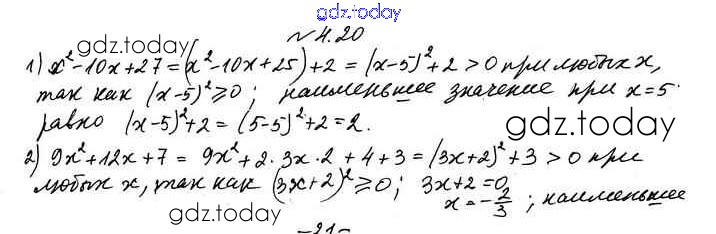 gdz.today
№4.20
gdz.today
1) x²-10x+27=(x²-10x+25)+2=(x-5)²+2>0 при любых x,
так как (x-5)²≥0; наименьшее значение при x=5
равно (x-5)²+2=(5-5)²+2=2.
gdz.today
2) 9x²+12x+7=9x²+2·3x·2+4+3=(3x+2)²+3>0 при
любых x, так как (3x+2)²≥0; 3x+2=0
x=-2/3; наименьшее
gdz.today
-21-